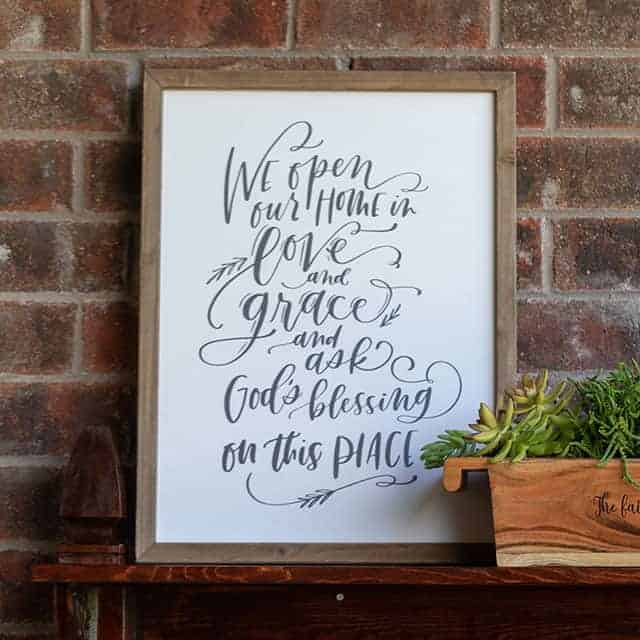 We open
our Home in
love
and
grace
and
ask
God's blessing
on this PlACE
The